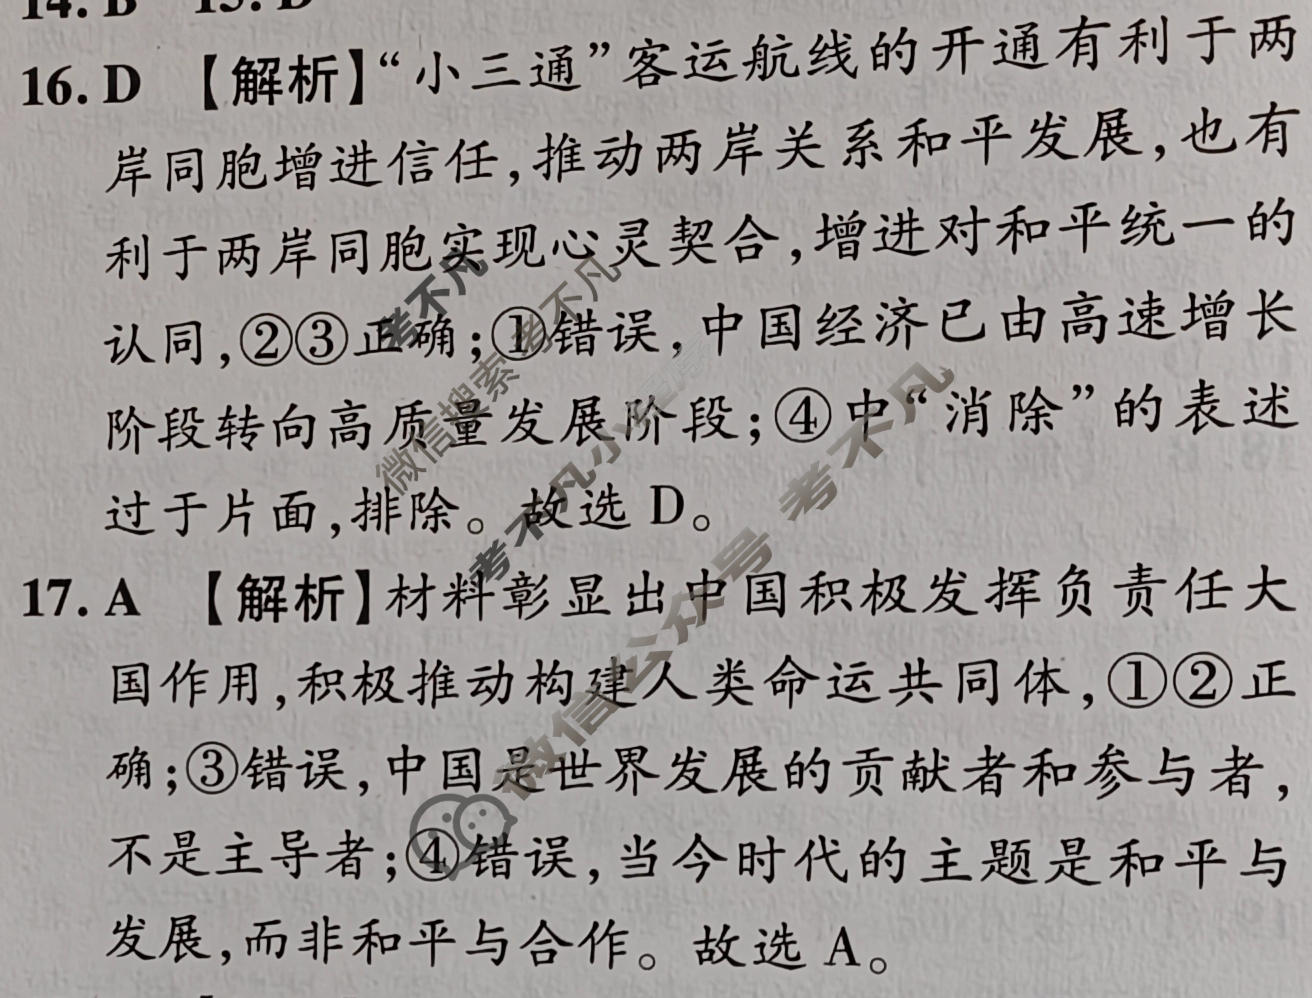 14. B 15. D
16. D 【解析】“小三通”客运航线的开通有利于两
岸同胞增进信任,推动两岸关系和平发展,也有
利于两岸同胞实现心灵契合,增进对和平统一的
认同,②③正确;①错误,中国经济已由高速增长
阶段转向高质量发展阶段;④中“消除”的表述
过于片面,排除。故选 D。
17. A 【解析】材料彰显出中国积极发挥负责任大
国作用,积极推动构建人类命运共同体,①②正
确;③错误,中国是世界发展的贡献者和参与者,
不是主导者;④错误,当今时代的主题是和平与
发展,而非和平与合作。故选 A。
考不凡
微信搜索 考不凡
考不凡小
微信公众号 考不凡